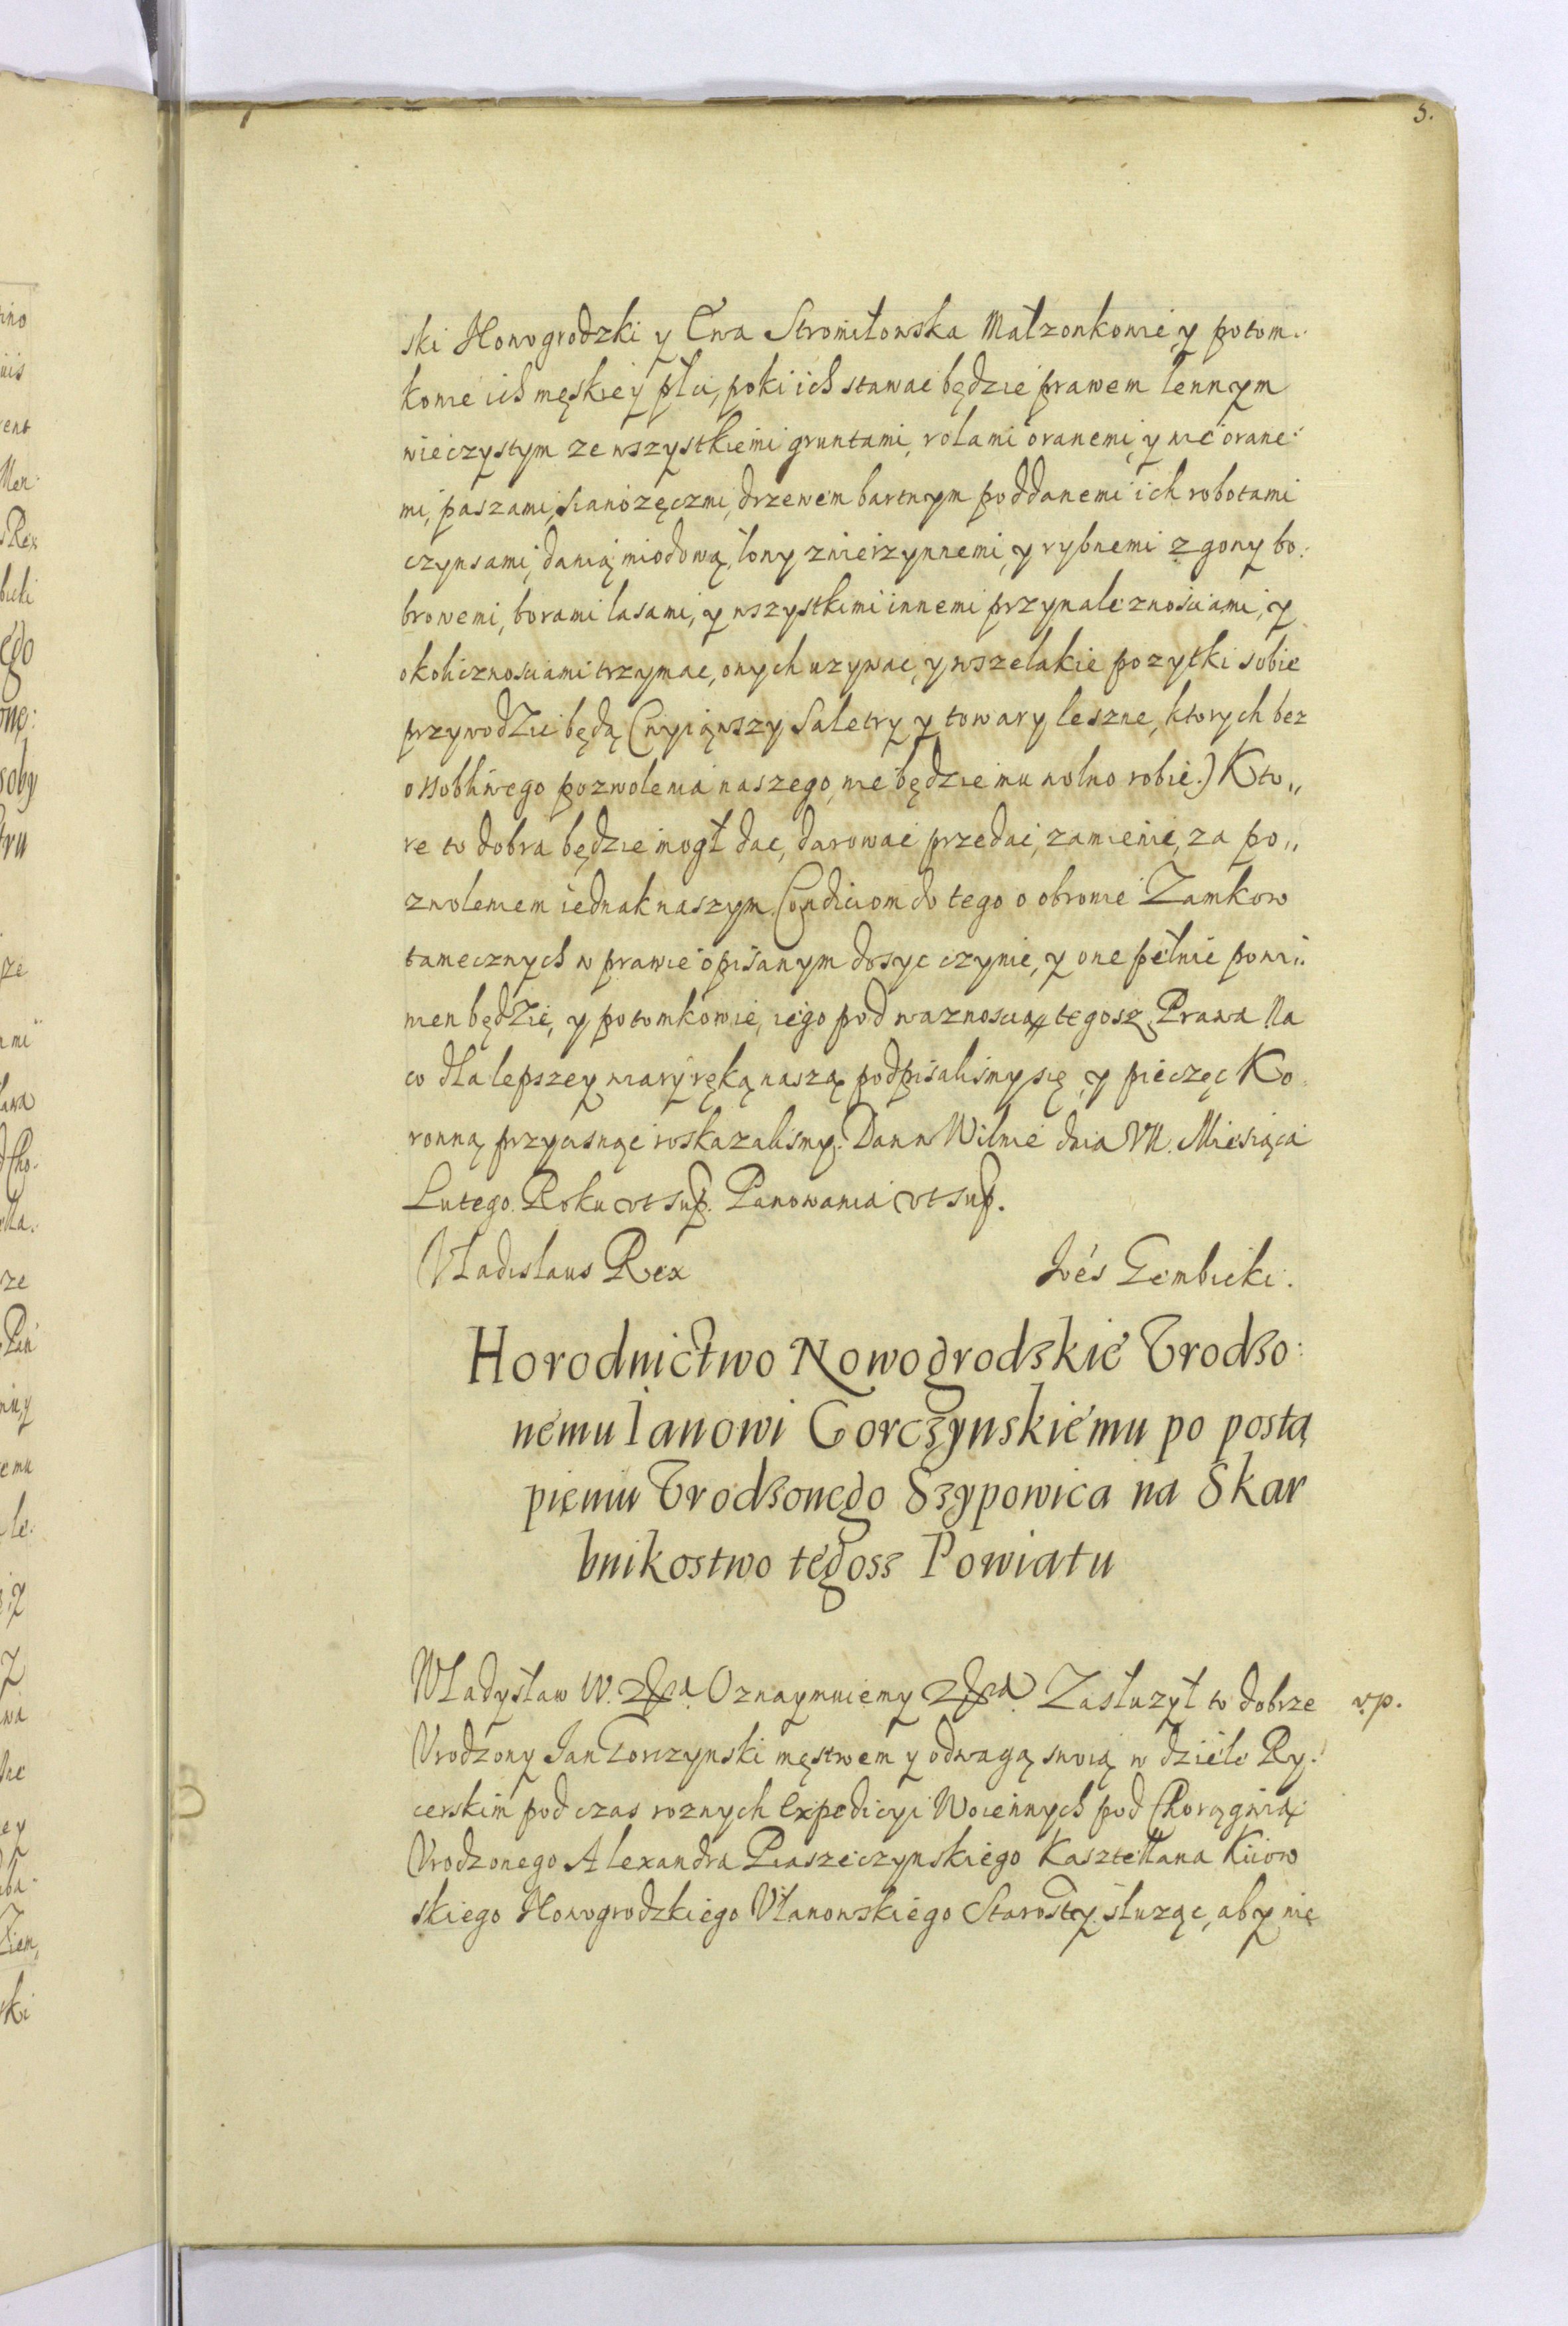 5.
ski Nowogrodzki y Ewa Stromiłowska Małzonkowie, y potom:
kowie ich męskiey płci, poki ich stawac będzie prawem lennym
wieczystym ze wszystkiemi gruntami, rolami oranemi, y nie orane:
mi, paszami, sianozęczmi, drzewem bartnym poddanemi ich robotami
czynsami, danią miodową, łony zwierzynnemi, y rybnemi zgony bo:
browemi, borami lasami, y wszystkimi innemi przynaleznosciami, y
okolicznosciami trzymac, onych uzywac, y wszelakie pozytki sobie
przywodzic będą (wyiąwszy Saletry y towary leszne, ktorych bez
ossobliwego pozwolenia naszego, nie będzie mu wolno robic.) Kto„
re to dobra będzie mogł dac, darowac przedac, zamienic, za po„
zwoleniem iednak naszym. Condiciom do tego o obronie Zamkow
tamecznych w prawie opisanym dosyc czynic, y one pełnic powi:
nien będzie, y potomkowie, iego pod waznoscią tegosz Prawa Na
co dla lepszey wiary ręką naszą podpisalismy się, y pieczęc Ko
ronną przycisnąc roskazalismy. Dan w Wilnie dnia VII. Miesiąca
Lutego. Roku vt sup. Panowania vt sup.
Vladislaus Rex Joes Gembicki.
Horodnictwo Nowogrodzkie Vrodzo:
nemu Ianowi Gorczynskiemu po postą
pieniu Vrodzonego Szypowica na Skar
bnikostwo tegosz Powiatu
Władysław IV. z Bożą Oznaymuiemy Zasłuzył to dobrze v.p.
Vrodzony Jan Gorczynski męstwem y odwagą swoią w dziele Ry:
cerskim pod czas roznych Expedicyi Woiennych pod Chorągwią
Vrodzonego Alexandra Piaszeczynskiego Kasztellana Kiiow
skiego Nowogrodzkiego Vłanowskiego Starosty służąc, aby nie